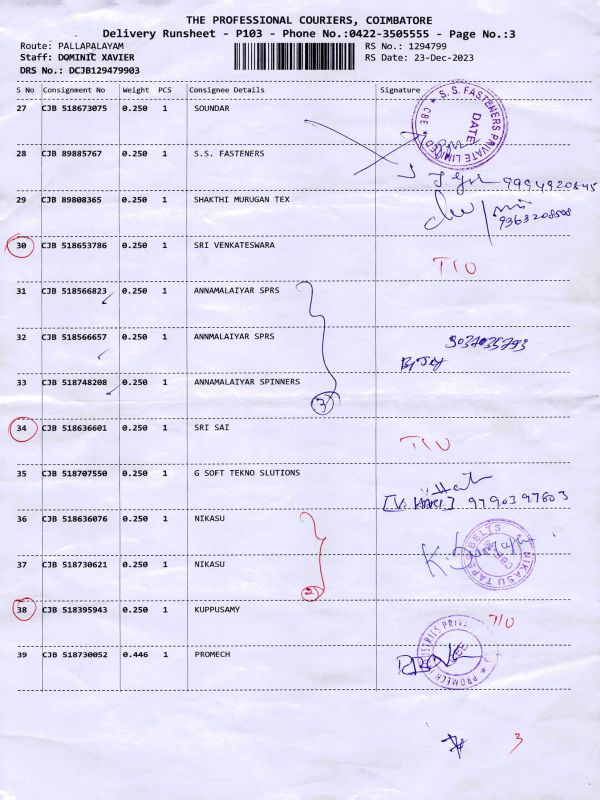 THE PROFESSIONAL COURIERS, COIMBATORE
Delivery Runsheet - P103 - Phone No.:0422-3505555 - Page No.:3
Route: PALLAPALAYAM RS No.: 1294799
Staff: DOMINIC XAVIER RS Date: 23-Dec-2023
DRS No.: DCJB129479903
S No Consignment No Weight PCS Consignee Details Signature
27 CJB 518673075 0.250 1 SOUNDAR
S.S. FASTENERS PRIVATE LIMITED * CBE *
DATE
28 CJB 89885767 0.250 1 S.S. FASTENERS
9994920845
29 CJB 89808365 0.250 1 SHAKTHI MURUGAN TEX
9363208508
30 CJB 518653786 0.250 1 SRI VENKATESWARA
T/O
31 CJB 518566823 0.250 1 ANNAMALAIYAR SPRS
32 CJB 518566657 0.250 1 ANNMALAIYAR SPRS
33 CJB 518748208 0.250 1 ANNAMALAIYAR SPINNERS
3
34 CJB 518636601 0.250 1 SRI SAI
T/O
35 CJB 518707550 0.250 1 G SOFT TEKNO SLUTIONS
[V. HARI.] 9790397803
36 CJB 518636076 0.250 1 NIKASU
NIKASU TAPES BELTS
37 CJB 518730621 0.250 1 NIKASU
2
38 CJB 518395943 0.250 1 KUPPUSAMY
T/O
39 CJB 518730052 0.446 1 PROMECH
PROMECH
3